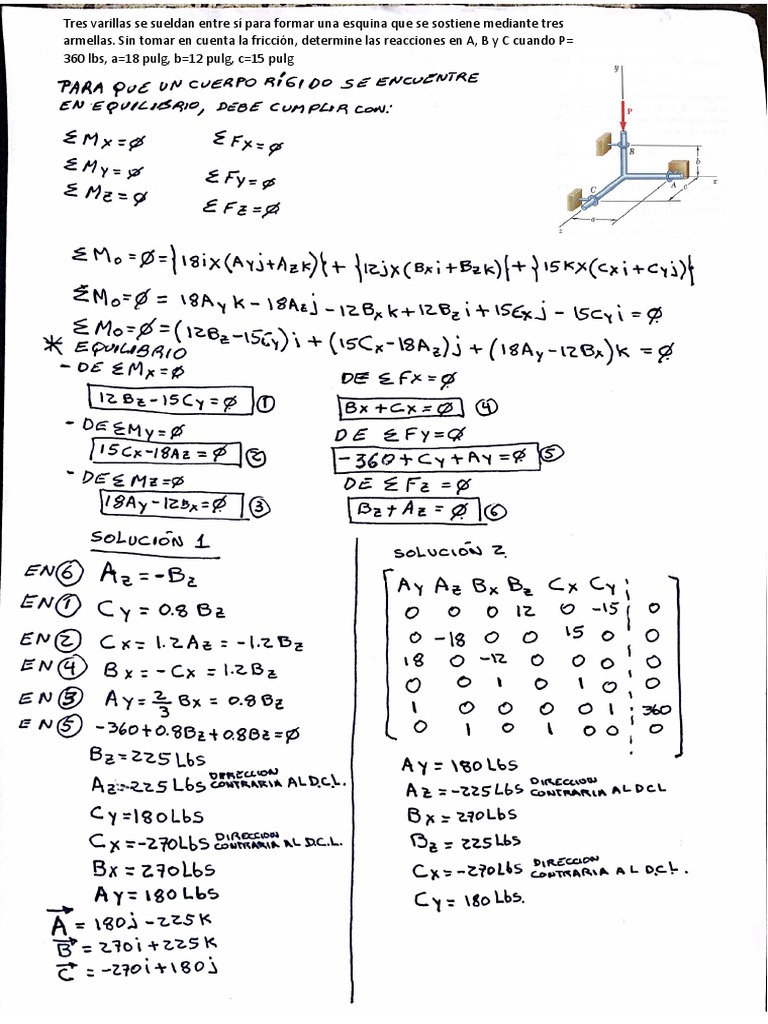 Tres varillas se sueldan entre sí para formar una esquina que se sostiene mediante tres
armellas. Sin tomar en cuenta la fricción, determine las reacciones en A, B y C cuando P=
360 lbs, a=18 pulg, b=12 pulg, c=15 pulg
PARA QUE UN CUERPO RÍGIDO SE ENCUENTRE
EN EQUILIBRIO, DEBE CUMPLIR CON:
ΣMx=Ø ΣFx=Ø
ΣMy=Ø ΣFy=Ø
ΣMz=Ø ΣFz=Ø
y
P
B
b
A
x
C
c
a
z
ΣMo=Ø={18ix(Ayj+Azk)}+{12jx(Bxi+Bzk)}+{15kx(Cxi+Cyj)}
ΣMo=Ø=18Ayk-18Azj-12Bxk+12Bzi+15Cxj-15Cyi=Ø
ΣMo=Ø=(12Bz-15Cy)i+(15Cx-18Az)j+(18Ay-12Bx)k=Ø
* EQUILIBRIO
- DE ΣMx=Ø
12Bz-15Cy=Ø ①
- DE ΣMy=Ø
15Cx-18Az=Ø ②
- DE ΣMz=Ø
18Ay-12Bx=Ø ③
DE ΣFx=Ø
Bx+Cx=Ø ④
DE ΣFy=Ø
-360+Cy+Ay=Ø ⑤
DE ΣFz=Ø
Bz+Az=Ø ⑥
SOLUCIÓN 1
EN ⑥ Az=-Bz
EN ① Cy=0.8Bz
EN ② Cx=1.2Az=-1.2Bz
EN ④ Bx=-Cx=1.2Bz
EN ③ Ay=2/3 Bx=0.8Bz
EN ⑤ -360+0.8Bz+0.8Bz=Ø
Bz=225Lbs
Az=-225Lbs DIRECCION CONTRARIA AL D.C.L.
Cy=180Lbs
Cx=-270Lbs DIRECCION CONTRARIA AL D.C.L.
Bx=270Lbs
Ay=180Lbs
A=180j-225k
B=270i+225k
C=-270i+180j
SOLUCIÓN 2
Ay Az Bx Bz Cx Cy
0 0 0 12 0 -15 0
0 -18 0 0 15 0 0
18 0 -12 0 0 0 0
0 0 1 0 1 0 0
1 0 0 0 0 1 360
0 1 0 1 0 0 0
Ay=180Lbs
Az=-225Lbs DIRECCION CONTRARIA AL DCL
Bx=270Lbs
Bz=225Lbs
Cx=-270Lbs DIRECCION CONTRARIA AL D.C.L.
Cy=180Lbs.